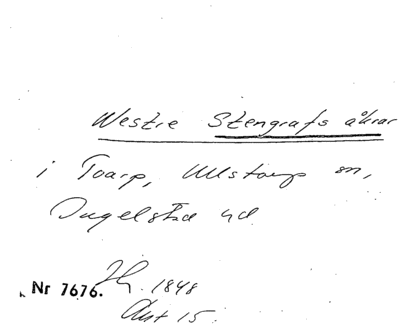 Westre Stengrafs åkrar
i Toarp, Ullstorps sn,
Ingelstad hd.
1848
Nr 7676.
Akt 15.